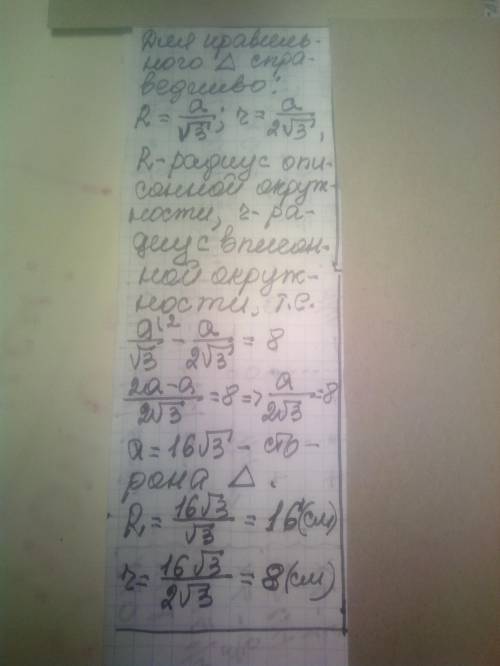 Для правиль-
ного △ спра-
ведливо:
R = a/√3; r = a/2√3,
R-радиус опи-
санной окруж-
ности, r-ра-
диус вписан-
ной окруж-
ности, т.е.
a/√3 ² - a/2√3 = 8
2a-a/2√3 = 8 => a/2√3 = 8
a = 16√3 - сто-
рона △.
R, = 16√3/√3 = 16 (см)
r = 16√3/2√3 = 8 (см)